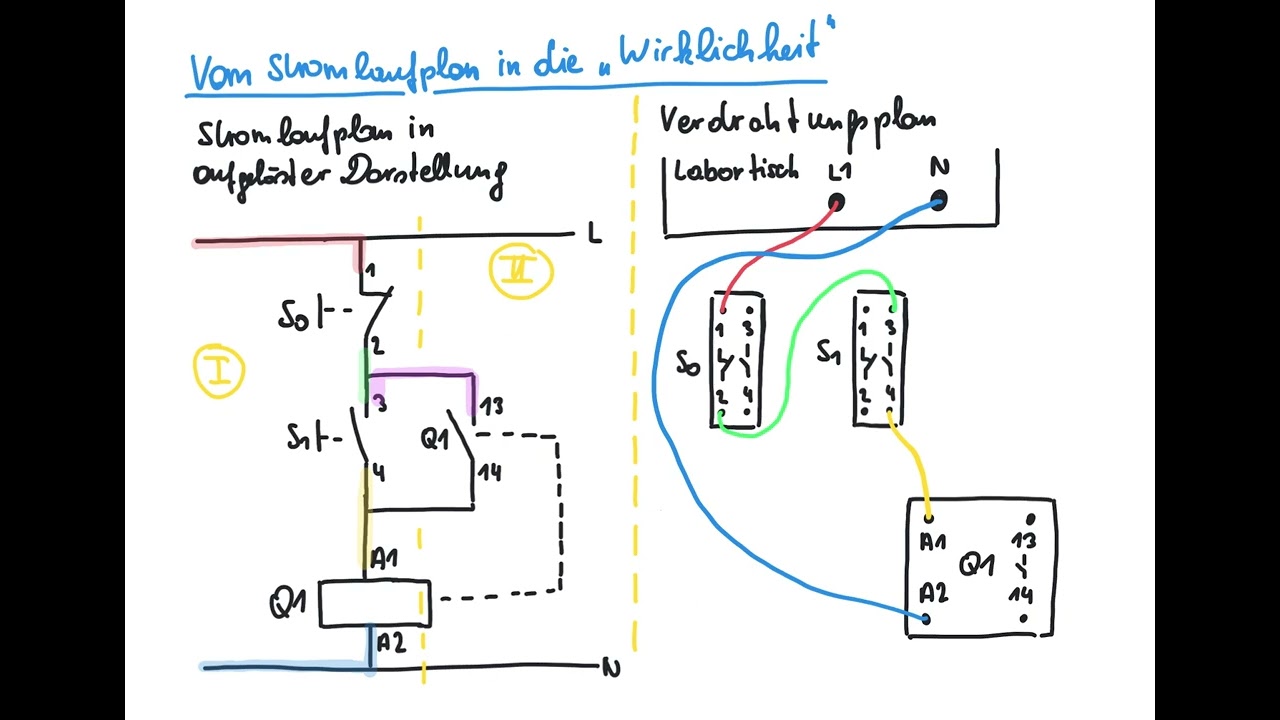 Vom Stromlaufplan in die „Wirklichkeit“
Stromlaufplan in
aufgelöster Darstellung
L
II
1
S0
2
I
3
13
S1
Q1
4
14
A1
Q1
A2
N
Verdrahtungsplan
Labortisch L1 N
1 3
S0
2 4
1 3
S1
2 4
A1 13
Q1
A2 14